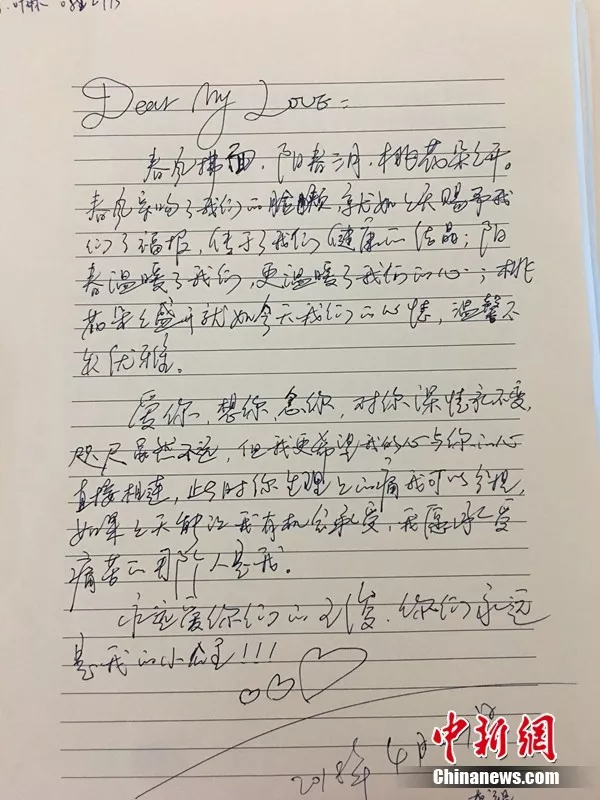 Dear My Love:
春风拂面,阳春三月,桃花朵朵开。
春风亲吻了我们的脸颊,就如上天赐予我
们了福报,传予了我们健康的结晶;阳
春温暖了我们,更温暖了我们的心;桃
花朵朵盛开就如今天我们的心情,温馨不
失优雅。
爱你,想你,念你,对你深情永不变,
咫尺虽然不远,但我更希望我的心与你的心
直接相连,此时你生理上的痛我可以分担,
如果上天能让我有机会承受,我愿承受
痛苦的那个人是我。
永远爱你们的王俊,你们永远
是我的小公主!!!
2018年4月
中新网
Chinanews.com